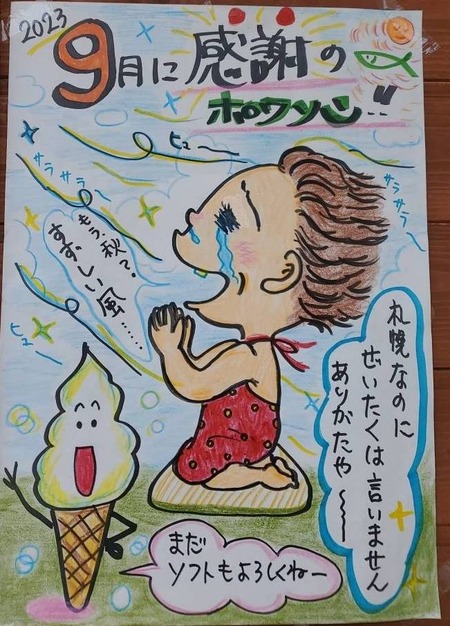 2023
9月に感謝の
ホロワソン!!
ヒュー
サラサラ
サラサラ
もう、秋?
すずしい風……
ヒュー
札幌なのに
ぜいたくは言いません
ありがたや〜〜
まだ
ソフトもよろしくねー